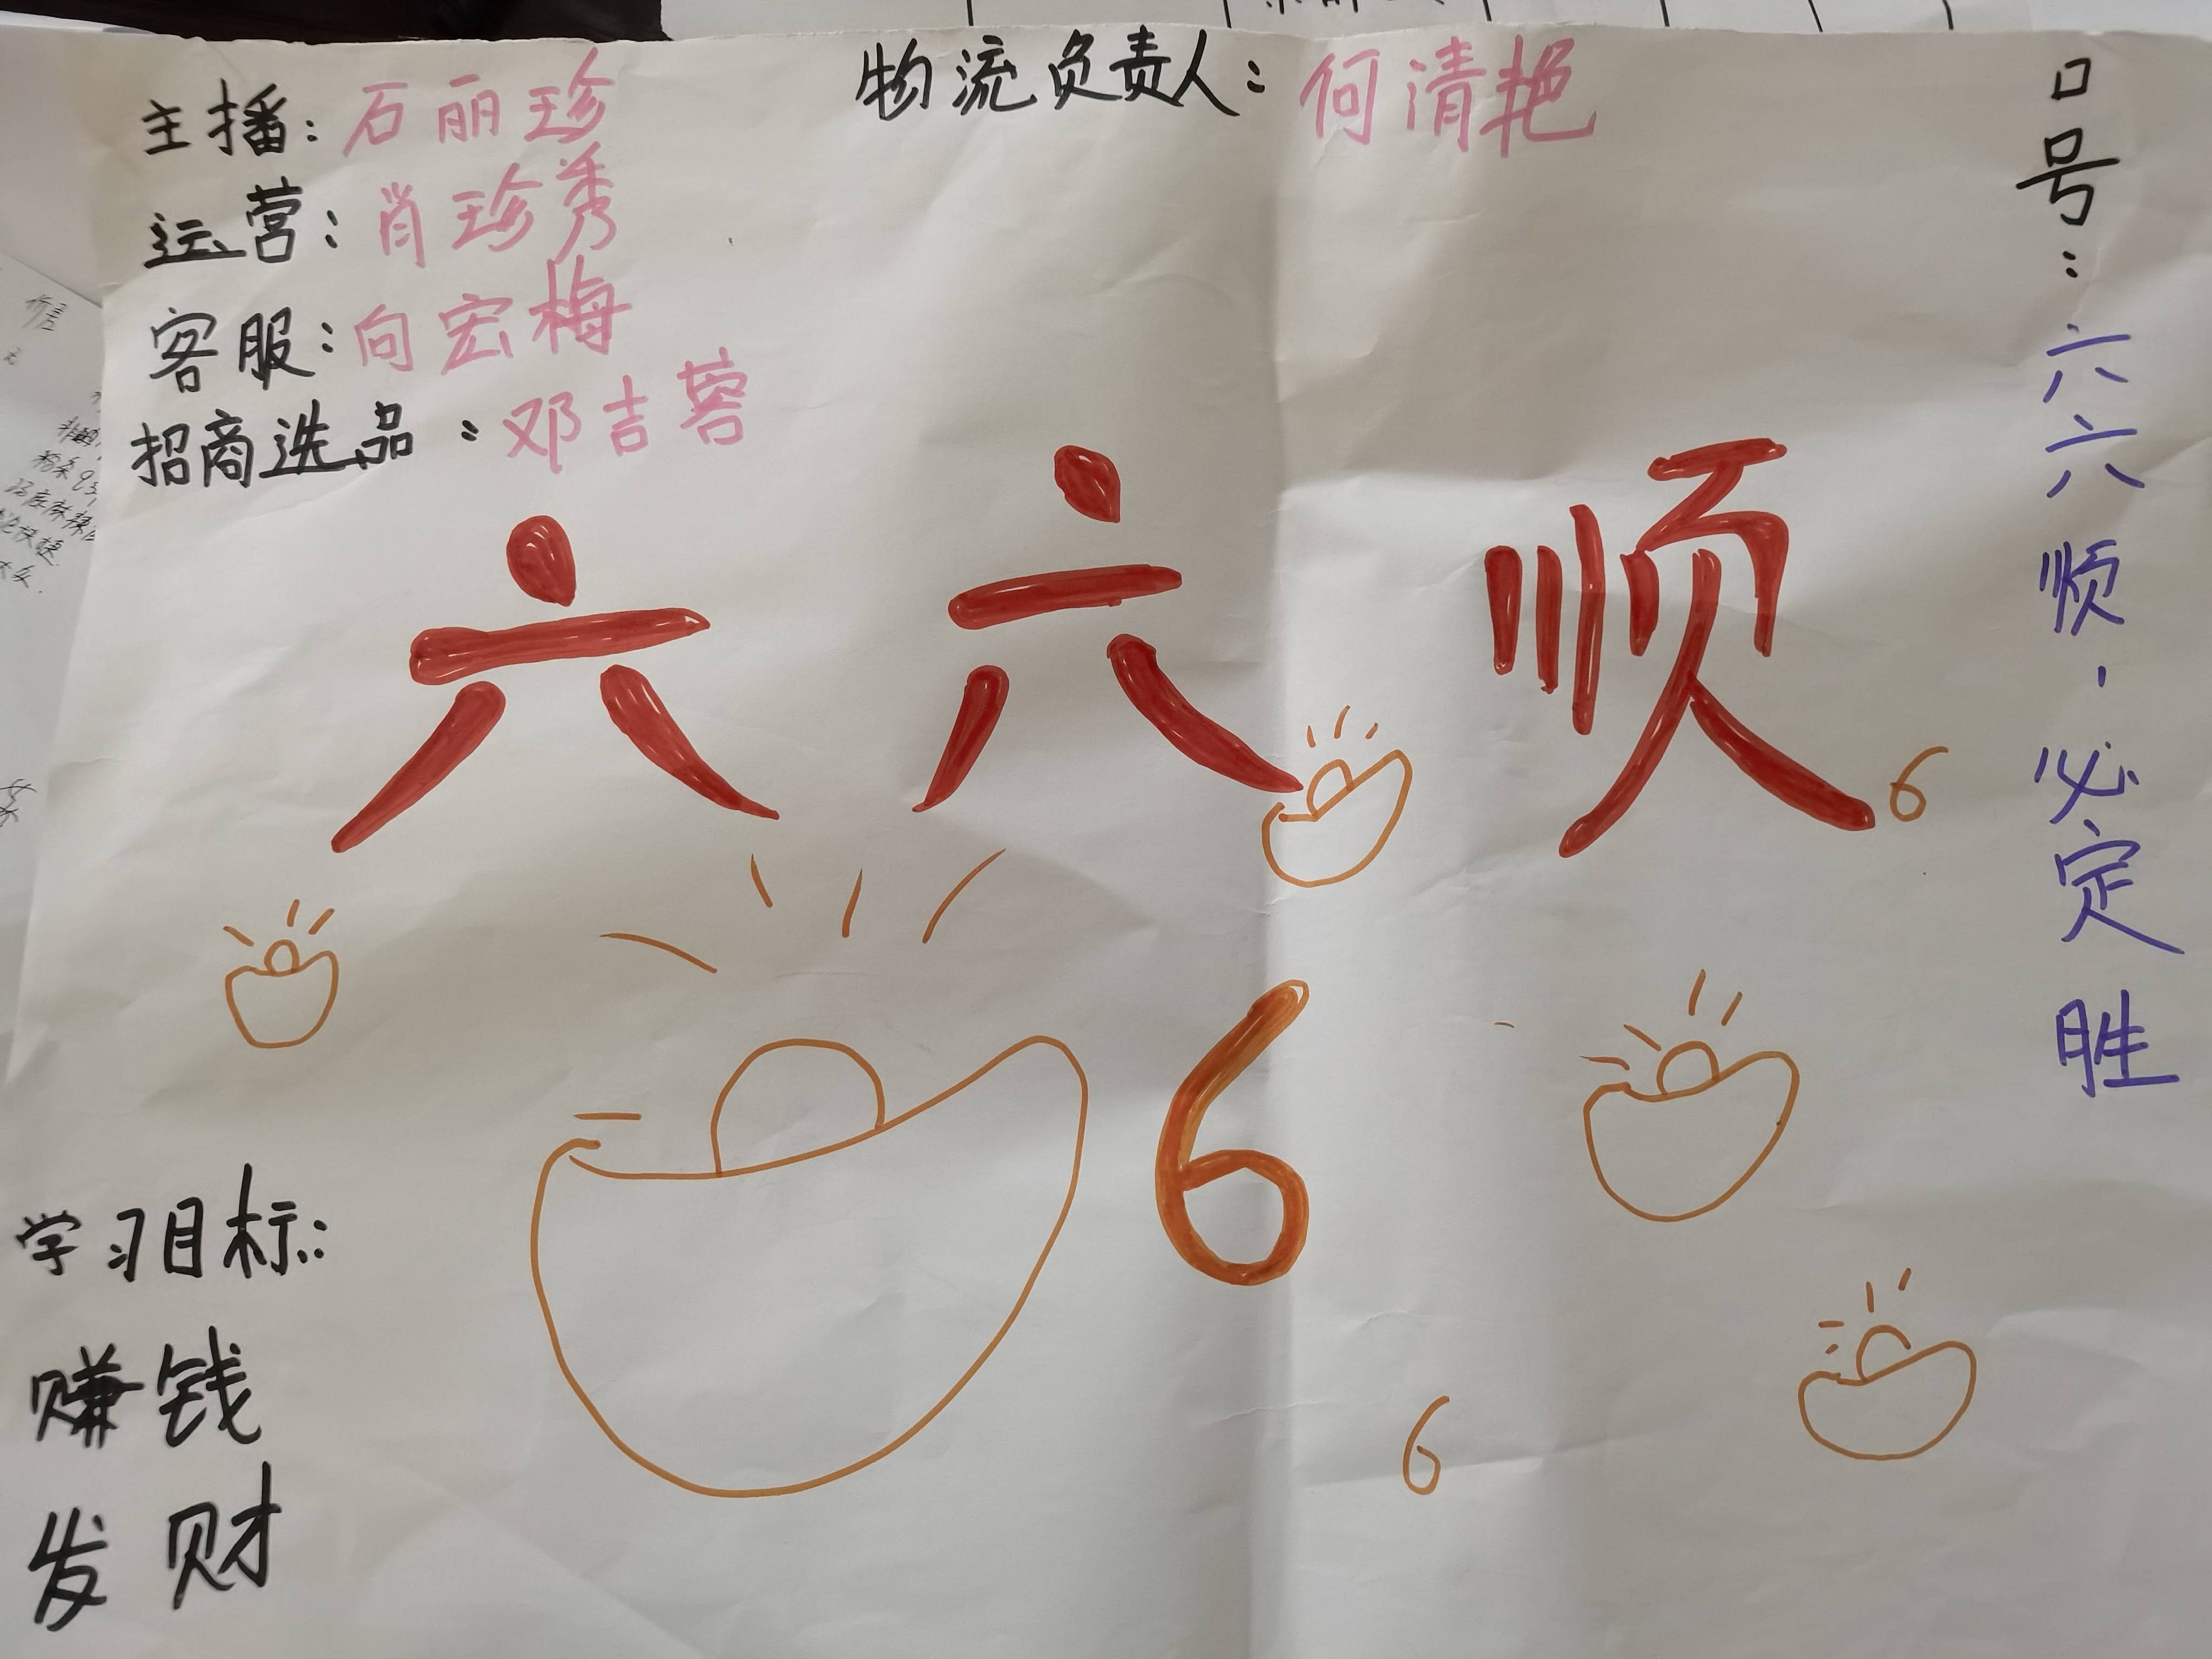 主播：石丽珍
物流负责人：何清艳
运营：肖珍秀
客服：向宏梅
招商选品：邓吉蓉
六六顺
6
6
6
学习目标：
赚钱
发财
口号：六六顺，必定胜